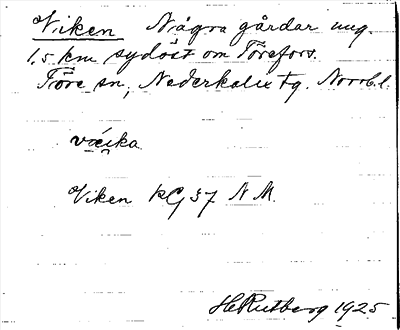 Viken Några gårdar ung.
1,5 km sydöst om Törefors.
Töre sn, Nederkalix tg. Norrb. l.
Viken KG 37 N M.
H Rutberg 1925